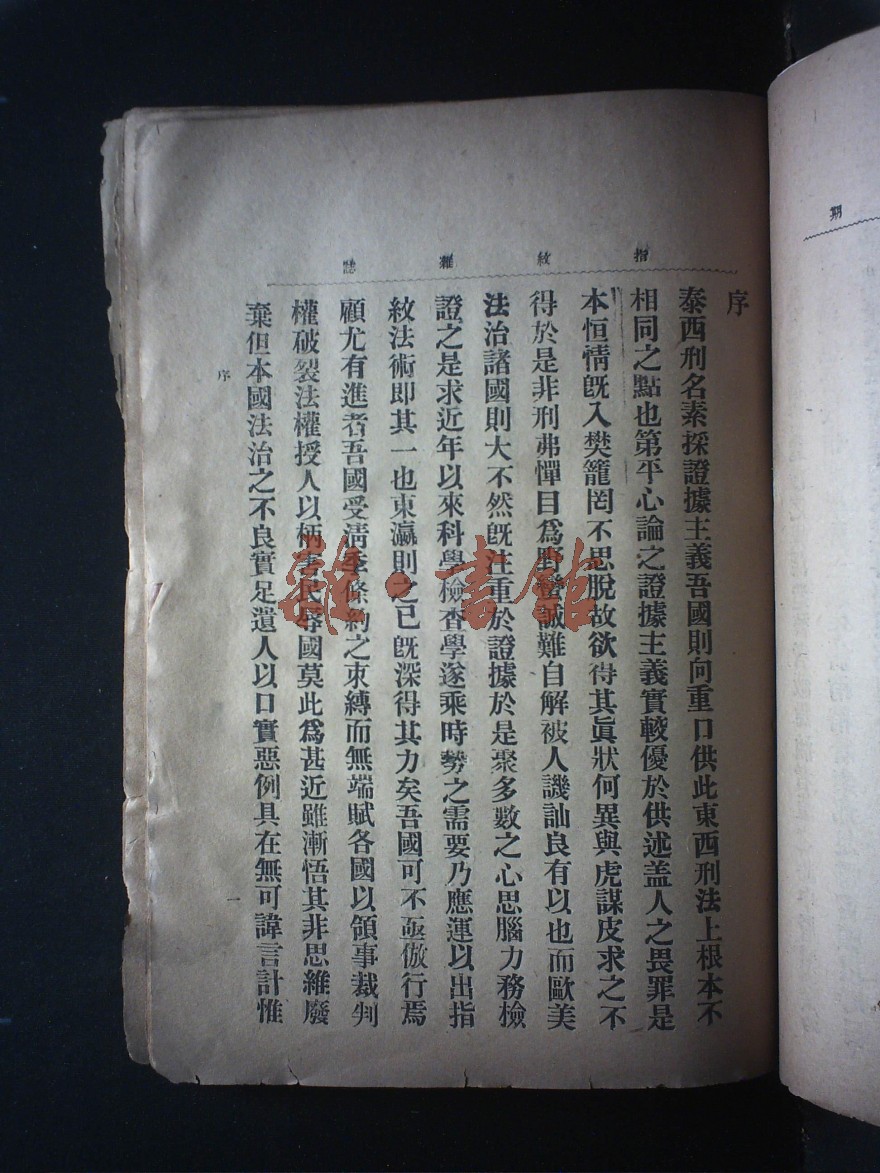 期
指紋雜誌
序
泰西刑名素採證據主義吾國則向重口供此東西刑法上根本不
相同之點也第平心論之證據主義實較優於供述盖人之畏罪是
本恒情旣入樊籠罔不思脫故欲得其眞狀何異與虎謀皮求之不
得於是非刑弗憚目爲野蠻誠難自解被人譏訕良有以也而歐美
法治諸國則大不然旣注重於證據於是聚多數之心思腦力務檢
證之是求近年以來科學檢查學遂乘時勢之需要乃應運以出指
紋法術即其一也東瀛則之已旣深得其力矣吾國可不亟倣行焉
顧尤有進者吾國受淸季條約之束縛而無端賦各國以領事裁判
權破裂法權授人以柄害民辱國莫此爲甚近雖漸悟其非思維廢
棄但本國法治之不良實足遺人以口實惡例具在無可諱言計惟
序
一
雜·書館